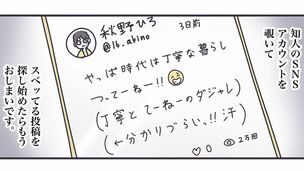 知人のSNS
アカウントを
覗いて
秋野ひろ
3日前
@16.akino
やっぱ時代は丁寧な暮らし
つってーねー!!
(丁寧とてーねーのダジャレ)
(←分かりづらいっ!!汗)
0
2万回
スベッてる投稿を
探し始めたらもう
おしまいです。